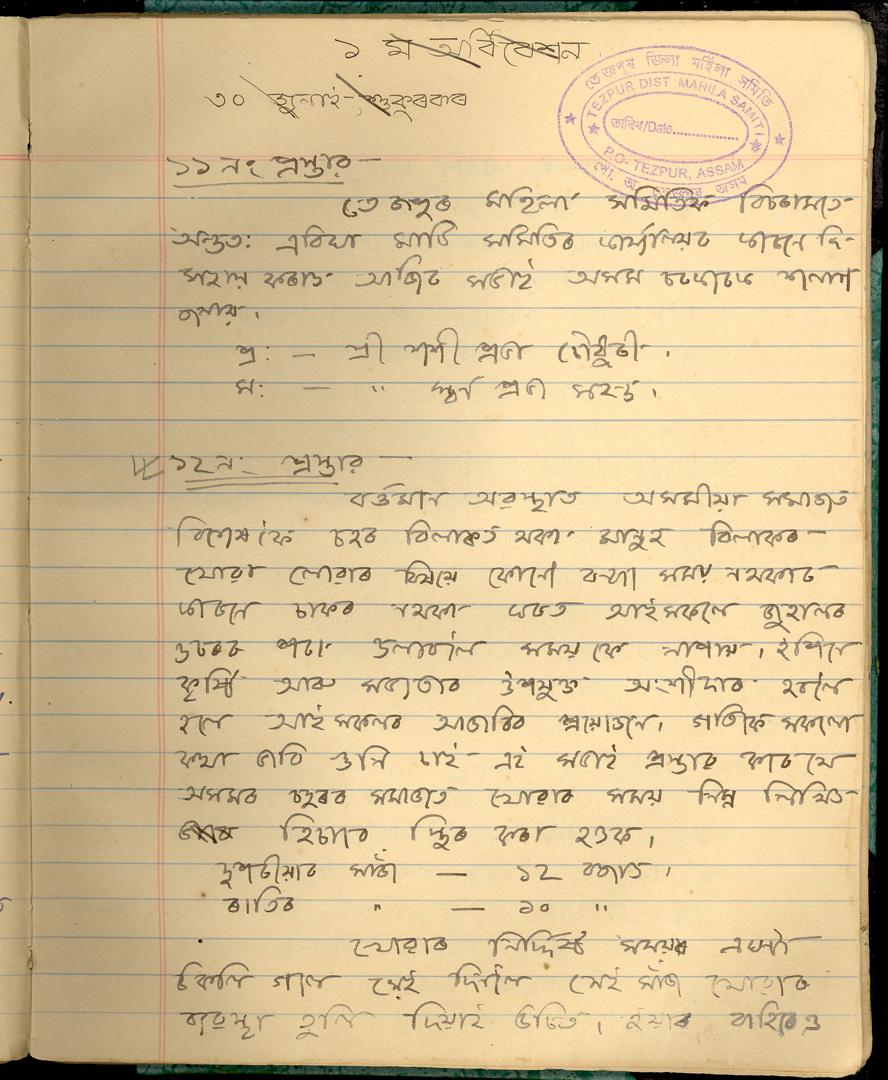 ১ ম অধিবেশন
৩০ জুলাই, শুকুৰবাৰ
তেজপুৰ জিলা মহিলা সমিতি
TEZPUR DIST MAHILA SAMITI
তাৰিখ/Date
P.O- TEZPUR, ASSAM
পো. অ. তেজপুৰ অসম
১১ নং প্ৰস্তাৱ —
তেজপুৰ মহিলা সমিতিক বিচৰামতে
অন্ততঃ এবিঘা মাটি সমিতিৰ কাৰ্য্যালয়ৰ কাৰণে দি
সহায় কৰাত আজিৰ সভাই অসম চৰকাৰক শলাগ
জনায়।
প্ৰ: — শ্ৰী শশী প্ৰভা চৌধুৰী।
স: — " স্বৰ্ণ প্ৰভা মহন্ত।
১২ নং প্ৰস্তাৱ —
বৰ্ত্তমান অৱস্থাত অসমীয়া সমাজত
বিশেষকৈ চহৰ বিলাকত থকা মানুহ বিলাকৰ
খোৱা লোৱাৰ বিষয়ে কোনো বন্ধা সময় নথকাৰ
কাৰণে চাকৰ নথকা ঘৰত আইসকলে জুহালৰ
ওচৰৰ পৰা ওলাবলৈ সময়কে নাপায়। ইপিনে
কৃষ্টি আৰু সভ্যতাৰ উপযুক্ত অংশীদাৰ হবলৈ
হলে আই সকলৰ আজৰিৰ প্ৰয়োজন। গতিকে সকলো
কথা ভাবি গুণি চাই এই সভাই প্ৰস্তাৱ কৰে যে
অসমৰ চহৰৰ সমাজত খোৱাৰ সময় নিম্ন লিখিত
হিচাবে স্থিৰ কৰা হওক।
দুপৰীয়াৰ সাঁজ — ১২ বজাত।
ৰাতিৰ " — ১০ "
খোৱাৰ নিৰ্দ্দিষ্ট সময়ৰ এঘণ্টা
উকলি গলে সেই দিনলৈ সেই সাঁজ খোৱাৰ
ব্যৱস্থা তুলি দিয়াই উচিত। ইয়াৰ বাহিৰেও